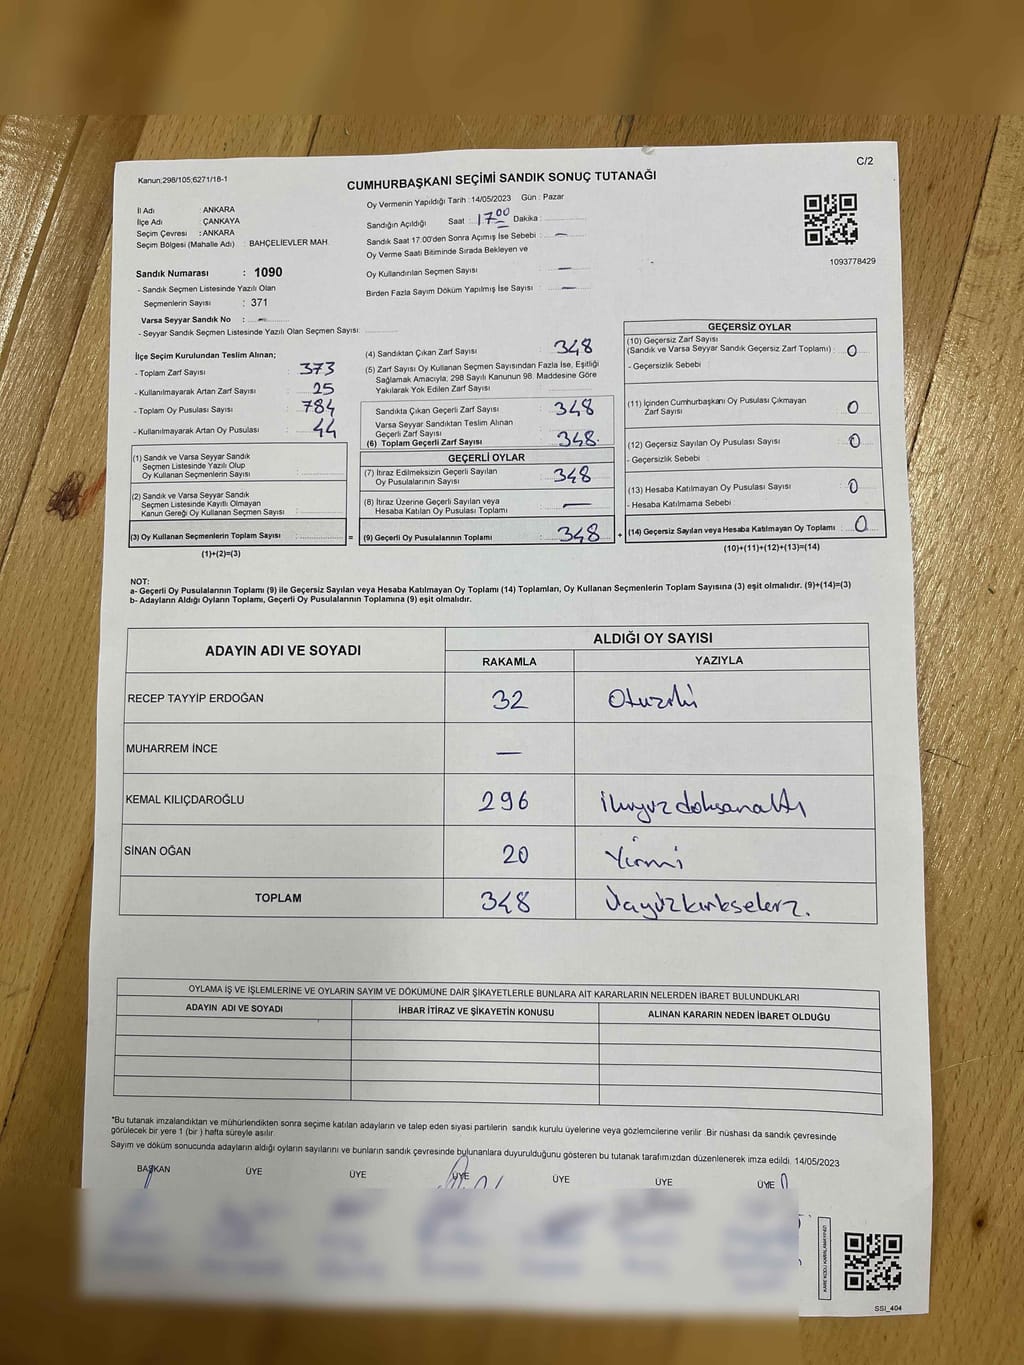 C/2
Kanun;298/105;6271/18-1
CUMHURBAŞKANI SEÇİMİ SANDIK SONUÇ TUTANAĞI
İl Adı : ANKARA
İlçe Adı : ÇANKAYA
Seçim Çevresi : ANKARA
Seçim Bölgesi (Mahalle Adı) : BAHÇELİEVLER MAH.
Oy Vermenin Yapıldığı Tarih : 14/05/2023 Gün : Pazar
Sandığın Açıldığı Saat : 17.00 Dakika :
Sandık Saat 17.00'den Sonra Açımış İse Sebebi : —
Oy Verme Saati Bitiminde Sırada Bekleyen ve
Oy Kullandırılan Seçmen Sayısı : —
Birden Fazla Sayım Döküm Yapılmış İse Sayısı : —
1093778429
Sandık Numarası : 1090
- Sandık Seçmen Listesinde Yazılı Olan
Seçmenlerin Sayısı : 371
Varsa Seyyar Sandık No : —
- Seyyar Sandık Seçmen Listesinde Yazılı Olan Seçmen Sayısı:
İlçe Seçim Kurulundan Teslim Alınan;
- Toplam Zarf Sayısı : 373
- Kullanılmayarak Artan Zarf Sayısı : 25
- Toplam Oy Pusulası Sayısı : 784
- Kullanılmayarak Artan Oy Pusulası : 44
(1) Sandık ve Varsa Seyyar Sandık
Seçmen Listesinde Yazılı Olup
Oy Kullanan Seçmenlerin Sayısı :
(2) Sandık ve Varsa Seyyar Sandık
Seçmen Listesinde Kayıtlı Olmayan
Kanun Gereği Oy Kullanan Seçmen Sayısı :
(3) Oy Kullanan Seçmenlerin Toplam Sayısı : =
(1)+(2)=(3)
(4) Sandıktan Çıkan Zarf Sayısı : 348
(5) Zarf Sayısı Oy Kullanan Seçmen Sayısından Fazla İse, Eşitliği
Sağlamak Amacıyla, 298 Sayılı Kanunun 98. Maddesine Göre
Yakılarak Yok Edilen Zarf Sayısı :
Sandıkta Çıkan Geçerli Zarf Sayısı : 348
Varsa Seyyar Sandıktan Teslim Alınan
Geçerli Zarf Sayısı :
(6) Toplam Geçerli Zarf Sayısı : 348.
GEÇERLİ OYLAR
(7) İtiraz Edilmeksizin Geçerli Sayılan
Oy Pusulalarının Sayısı : 348
(8) İtiraz Üzerine Geçerli Sayılan veya
Hesaba Katılan Oy Pusulası Toplamı : —
(9) Geçerli Oy Pusulalarının Toplamı : 348 +
GEÇERSİZ OYLAR
(10) Geçersiz Zarf Sayısı
(Sandık ve Varsa Seyyar Sandık Geçersiz Zarf Toplamı) : 0
- Geçersizlik Sebebi :
(11) İçinden Cumhurbaşkanı Oy Pusulası Çıkmayan
Zarf Sayısı : 0
(12) Geçersiz Sayılan Oy Pusulası Sayısı : 0
- Geçersizlik Sebebi :
(13) Hesaba Katılmayan Oy Pusulası Sayısı : 0
- Hesaba Katılmama Sebebi :
(14) Geçersiz Sayılan veya Hesaba Katılmayan Oy Toplamı : 0
(10)+(11)+(12)+(13)=(14)
NOT:
a- Geçerli Oy Pusulalarının Toplamı (9) ile Geçersiz Sayılan veya Hesaba Katılmayan Oy Toplamı (14) Toplamları, Oy Kullanan Seçmenlerin Toplam Sayısına (3) eşit olmalıdır. (9)+(14)=(3)
b- Adayların Aldığı Oyların Toplamı, Geçerli Oy Pusulalarının Toplamına (9) eşit olmalıdır.
ADAYIN ADI VE SOYADI
ALDIĞI OY SAYISI
RAKAMLA YAZIYLA
RECEP TAYYİP ERDOĞAN 32 Otuziki
MUHARREM İNCE —
KEMAL KILIÇDAROĞLU 296 ikiyüzdoksanaltı
SİNAN OĞAN 20 Yirmi
TOPLAM 348 Üçyüzkırksekiz.
OYLAMA İŞ VE İŞLEMLERİNE VE OYLARIN SAYIM VE DÖKÜMÜNE DAİR ŞİKAYETLERLE BUNLARA AİT KARARLARIN NELERDEN İBARET BULUNDUKLARI
ADAYIN ADI VE SOYADI İHBAR İTİRAZ VE ŞİKAYETİN KONUSU ALINAN KARARIN NEDEN İBARET OLDUĞU
*Bu tutanak imzalandıktan ve mühürlendikten sonra seçime katılan adayların ve talep eden siyasi partilerin sandık kurulu üyelerine veya gözlemcilerine verilir. Bir nüshası da sandık çevresinde
görülecek bir yere 1 (bir ) hafta süreyle asılır.
Sayım ve döküm sonucunda adayların aldığı oyların sayılarını ve bunların sandık çevresinde bulunanlara duyurulduğunu gösteren bu tutanak tarafımızdan düzenlenerek imza edildi. 14/05/2023
BAŞKAN ÜYE ÜYE ÜYE ÜYE ÜYE ÜYE
KAREKODU KARALAMAYINIZ!
SSI_404